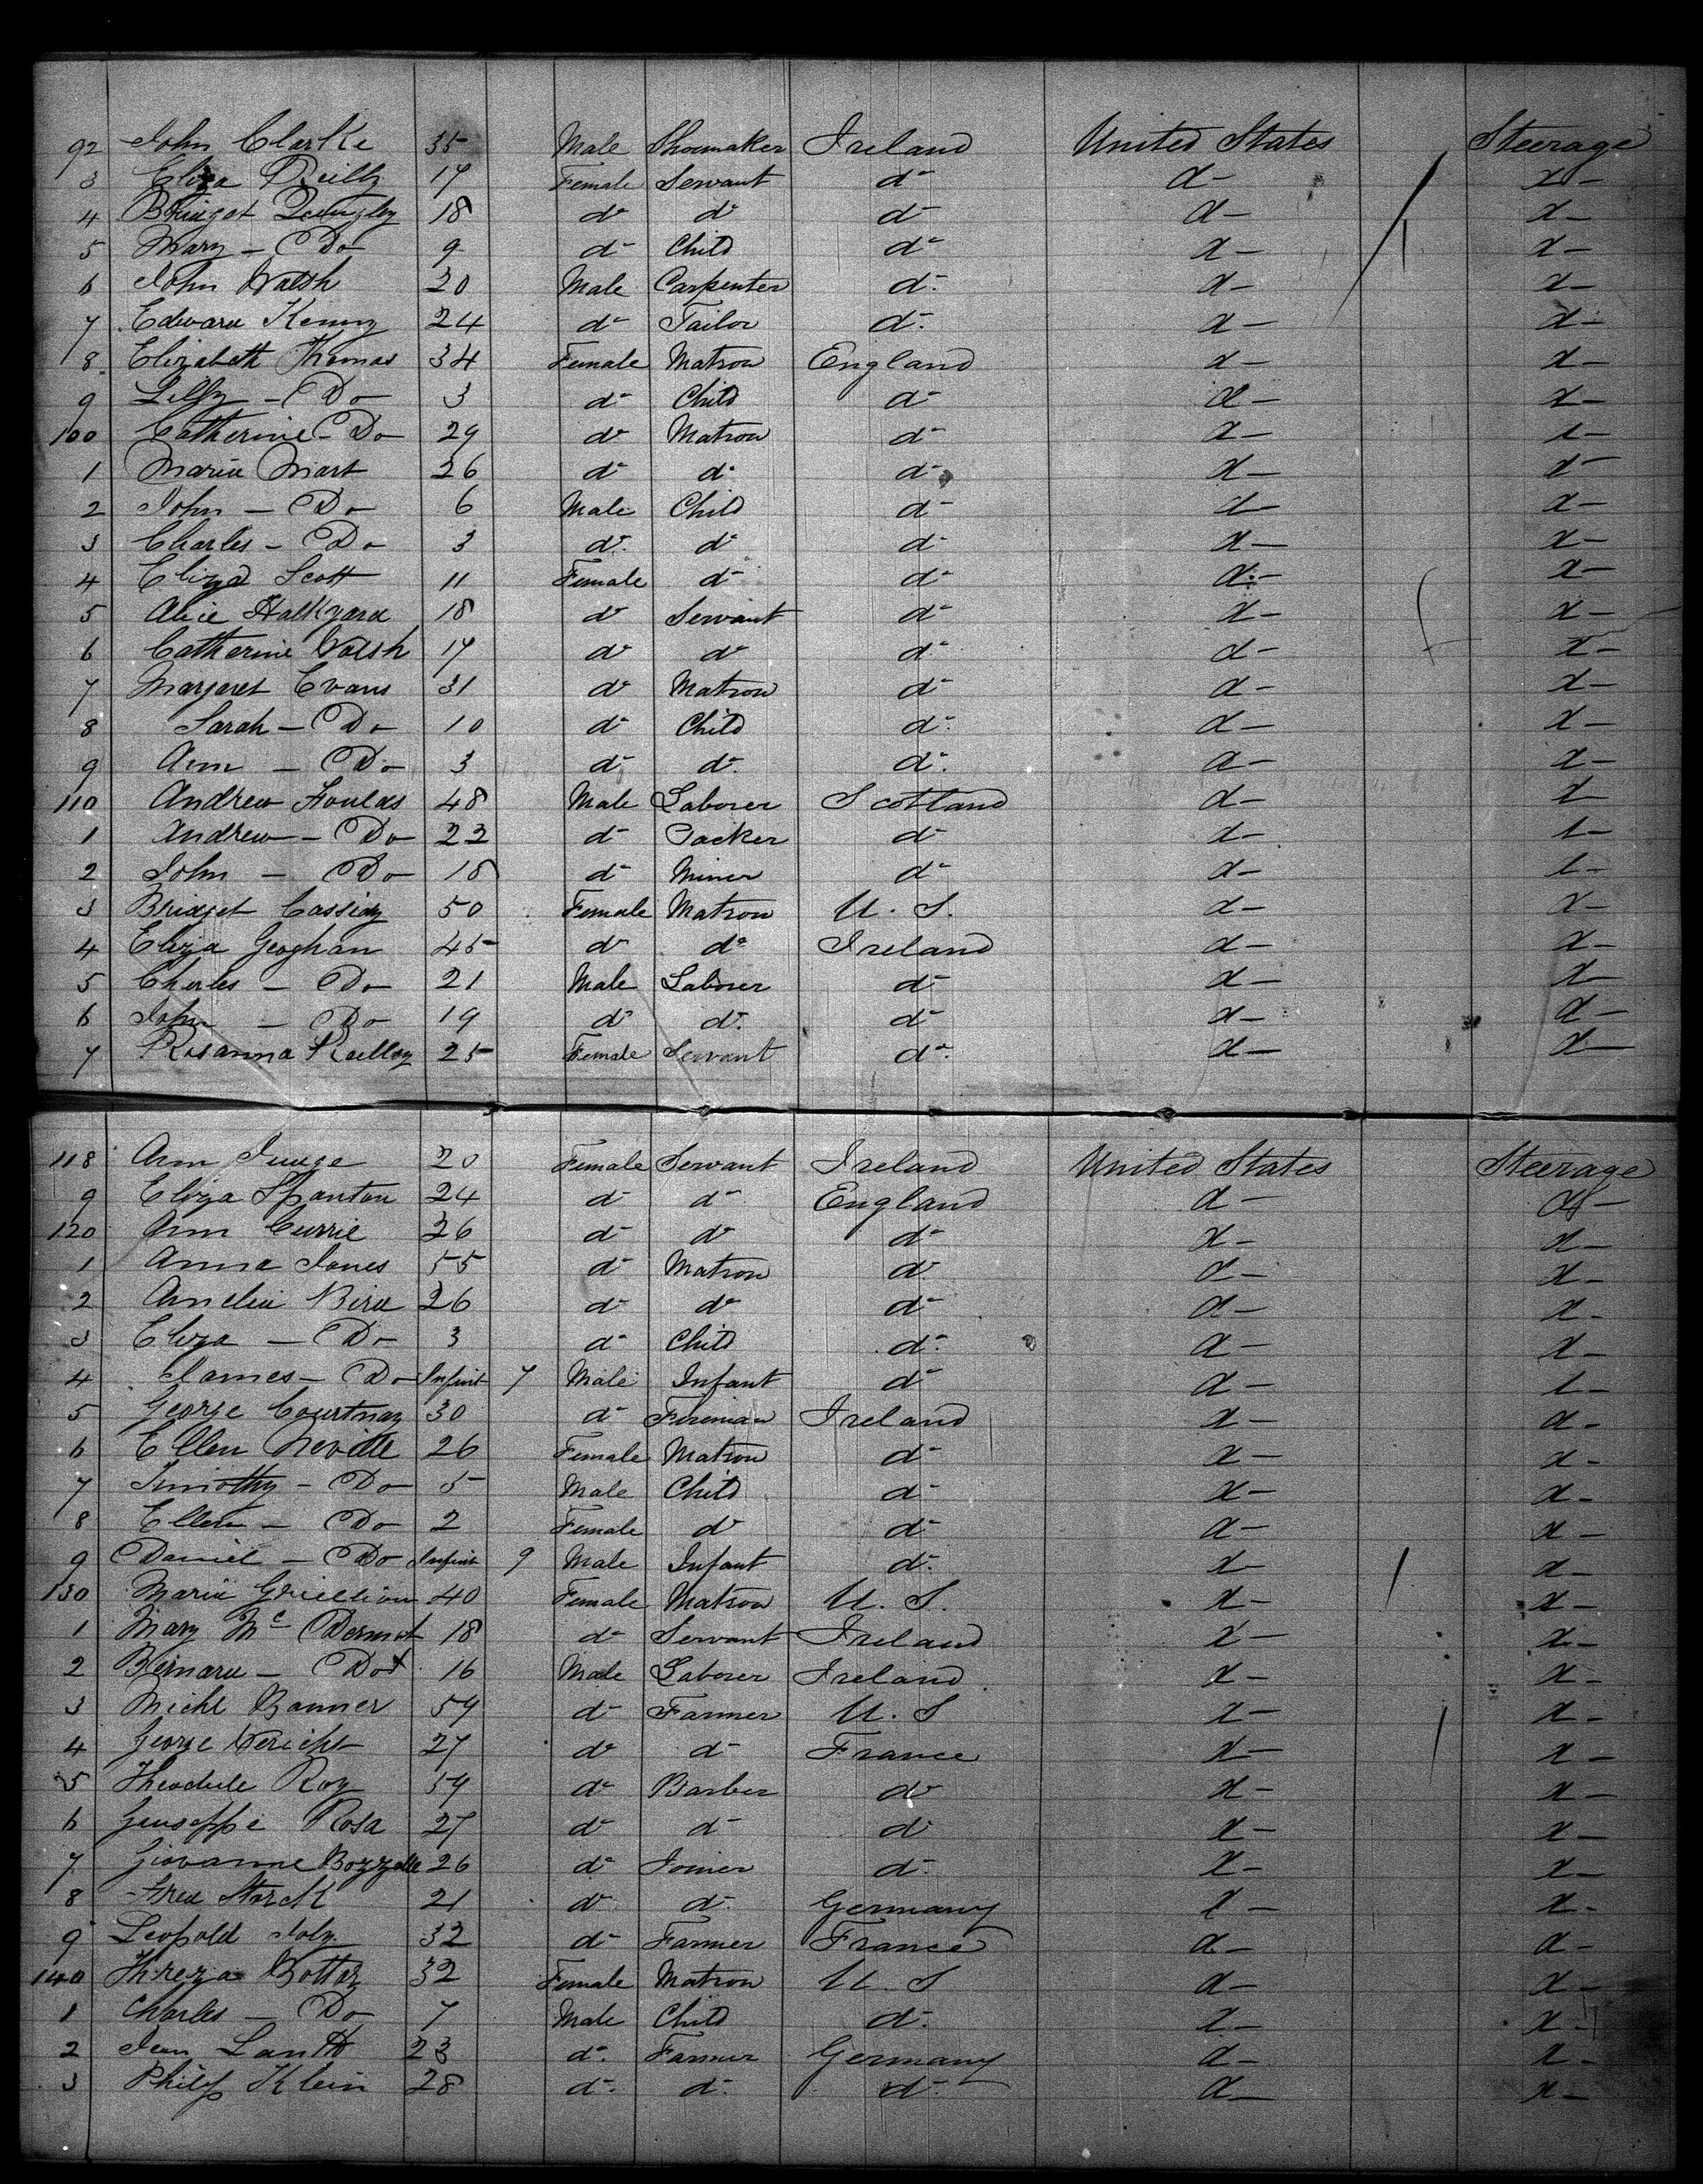 92 John Clarke 35 Male Shoemaker Ireland United States Steerage
3 Eliza Reilly 17 Female Servant do do do
4 Bridget Quingley 18 do do do do do
5 Mary - Do 9 do Child do do do
6 John Walsh 20 Male Carpenter do do do
7 Edward Kenny 24 do Tailor do do do
8 Elizabeth Thomas 34 Female Matron England do do
9 Lilly - Do 3 do Child do do do
100 Catherine - Do 29 do Matron do do do
1 Maria Mart 26 do do do do do
2 John - Do 6 Male Child do do do
3 Charles - Do 3 do do do do do
4 Eliza Scott 11 Female do do do do
5 Alice Halkyard 18 do Servant do do do
6 Catherine Walsh 17 do do do do do
7 Margaret Evans 31 do Matron do do do
8 Sarah - Do 10 do Child do do do
9 Ann - Do 3 do do do do do
110 Andrew Foulds 48 Male Laborer Scotland do do
1 Andrew - Do 22 do Packer do do do
2 John - Do 18 do Miner do do do
3 Bridget Cassidy 50 Female Matron U. S. do do
4 Eliza Geoghan 45 do do Ireland do do
5 Charles - Do 21 Male Laborer do do do
6 John - Do 19 do do do do do
7 Rosanna Reilley 25 Female Servant do do do
118 Ann Judge 20 Female Servant Ireland United States Steerage
9 Eliza Spanton 24 do do England do do
120 Ann Currie 26 do do do do do
1 Anna Jones 55 do Matron do do do
2 Amelia Bird 26 do do do do do
3 Eliza - Do 3 do Child do do do
4 James - Do Infant 7 Male Infant do do do
5 George Courtnay 30 do Fireman Ireland do do
6 Ellen Neville 26 Female Matron do do do
7 Timothy - Do 5 Male Child do do do
8 Ellen - Do 2 Female do do do do
9 Daniel - Do Infant 9 Male Infant do do do
130 Maria 40 Female Matron U. S. do do
1 Mary Mc Dermot 18 do Servant Ireland do do
2 Bernard - Do 16 Male Laborer Ireland do do
3 Michl Banner 59 do Farmer U. S do do
4 George 27 do do France do do
5 Theodule Roy 59 do Barber do do do
6 Giuseppe Rosa 27 do do do do do
7 Giovanne Bozzelle 26 do Joiner do do do
8 Fred Storck 21 do do Germany do do
9 Leopold 32 do Farmer France do do
140 Threza Bottaz 32 Female Matron U. S do do
1 Charles - Do 7 Male Child do do do
2 Jean 23 do Farmer Germany do do
3 Philip Klein 28 do do do do do